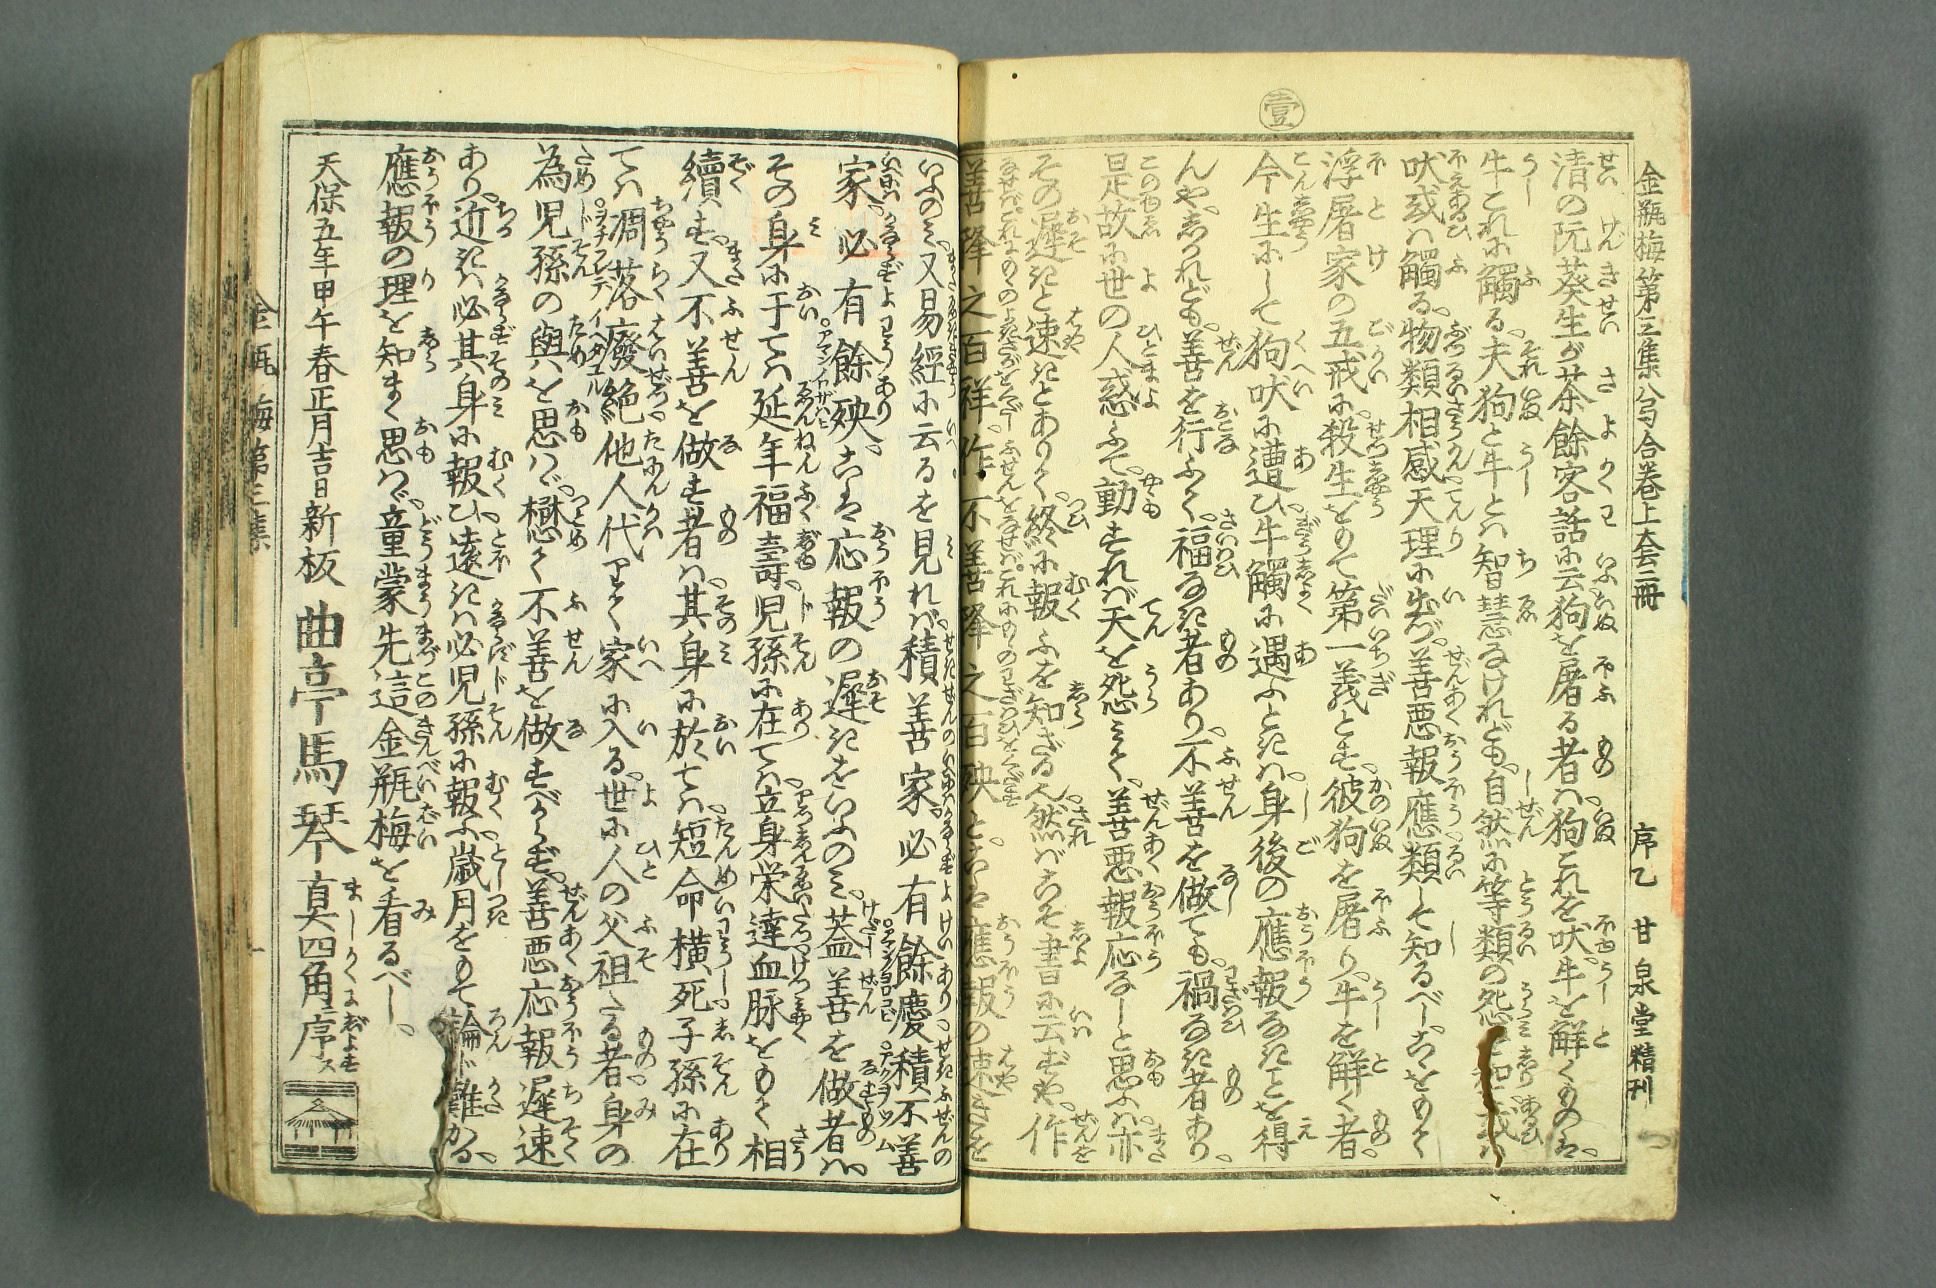 壹
金瓶梅第三集 合巻上套二冊 序乙 甘泉堂精刊
清の阮葵生が茶餘客話に云狗を屠る者ハ狗これを吠。牛を解くものは。
牛これに觸る。夫狗と牛とハ智慧なけれども。自然に等類の
吠或ハ觸る。物類相感天理に出づ。善悪報應類して知るべし。こゝをもて
浮屠家の五戒に。殺生をもて第一義とす。彼狗を屠り。牛を解く者。
今生にして狗吠に遭ひ牛觸に遇ふときハ。身後の應報なきことを得
んや。しかれども。善を行ふて。福なき者あり。不善を做ても。禍なき者あり。
是故に世の人惑ふて。動すれば天を怨みて。善悪報応なしと思ふハ亦
その遲きと速きとありて。終に報ふを知ざる也。然ばこそ書に云ずや。作
善降之百祥。作不善降之百殃と。こは應報の速きを
いふのミ。又易經に云るを見れば。積善家。必有餘慶。積不善
家。必有餘殃。こは応報の遲きをいふのミ。葢善を做者ハ。
その身に于てハ延年福壽。児孫に在てハ立身栄達血脉をもて相
續す。又不善を做す者ハ。其身に於てハ短命横死。子孫に在
てハ凋落廢絶他人代りて家に入る。世に人の父祖たる者。身の
為児孫の與を思ハゞ。懋て不善を做すべからず。善悪応報遲速
あり。近きハ必其身に報ひ。遠きハ必児孫に報ふ。歳月をもて論じ難かる。
應報の理を知まく思ハゞ。童蒙先這金瓶梅を看るべし。
天保五年甲午春正月吉日新板 曲亭馬琴真四角ニ序ス
金瓶梅第三集